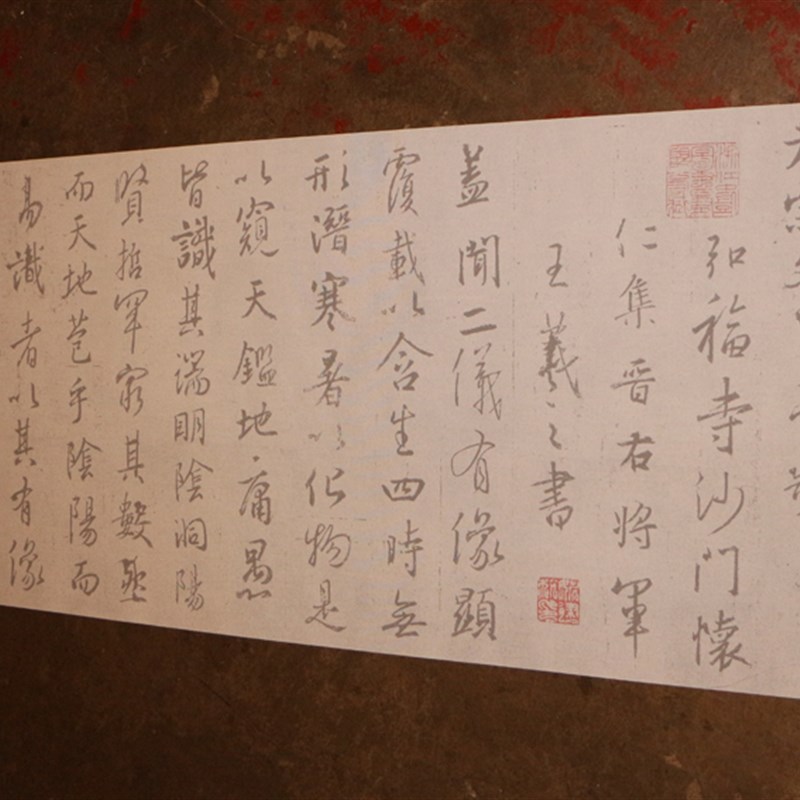 弘福寺沙門懷
仁集晉右將軍
王羲之書
蓋聞二儀有像顯
覆載以含生四時無
形潛寒暑以化物是
以窺天鑑地庸愚
皆識其端明陰洞陽
賢哲罕窮其數然
而天地苞乎陰陽而
易識者以其有像